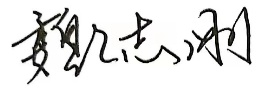 魏志刚